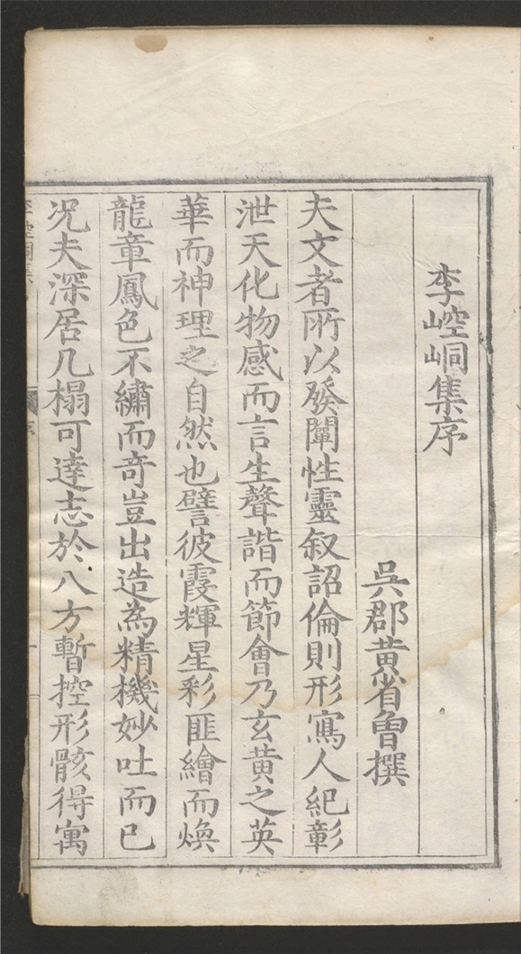 李崆峒集序
吳郡黃省曾撰
夫文者所以發闡性靈叙詔倫則形寫人紀彰
泄天化物感而言生聲諧而節會乃玄黃之英
華而神理之自然也譬彼霞輝星彩匪繪而煥
龍章鳳色不繡而奇豈出造為精機妙吐而已
况夫深居几榻可達志於八方暫控形骸得寓